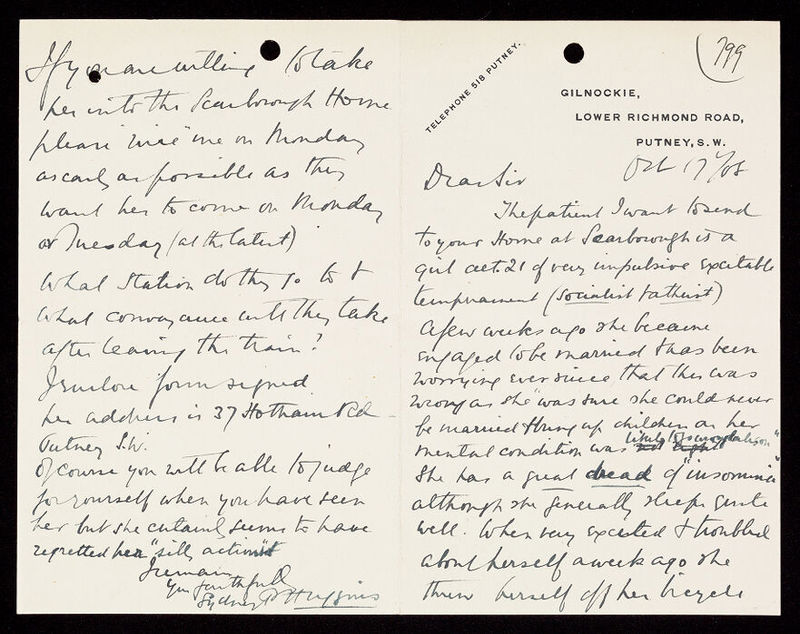 799
TELEPHONE 518 PUTNEY.
GILNOCKIE,
LOWER RICHMOND ROAD,
PUTNEY, S.W.
Oct 17/08
Dear Sir
The patient I want to send
to your Home at Scarborough is a
girl aet. 21 of very impulsive excitable
temperament (Socialist & atheist)
A few weeks ago she became
engaged to be married & has been
worrying ever since that this was
wrong as she was sure she could never
be married & bring up children as her
mental condition was likely to
She has a great dread of "insomnia"
although she generally sleeps quite
well. When very excited & troubled
about herself a week ago she
threw herself off her bicycle
If you are willing to take
her into the Scarborough Home
please "wire" me on Monday
as early as possible as they
want her to come on Monday
or Tuesday (at the latest)
What Station do they go to &
what conveyance will they take
after leaving the train?
I enclose form signed
her address is 37 Hotham Rd
Putney S.W.
Of course you will be able to judge
for yourself when you have seen
her but she certainly seems to have
regretted her "silly actions"
I remain
Yrs faithfully
Sydney P Huggins